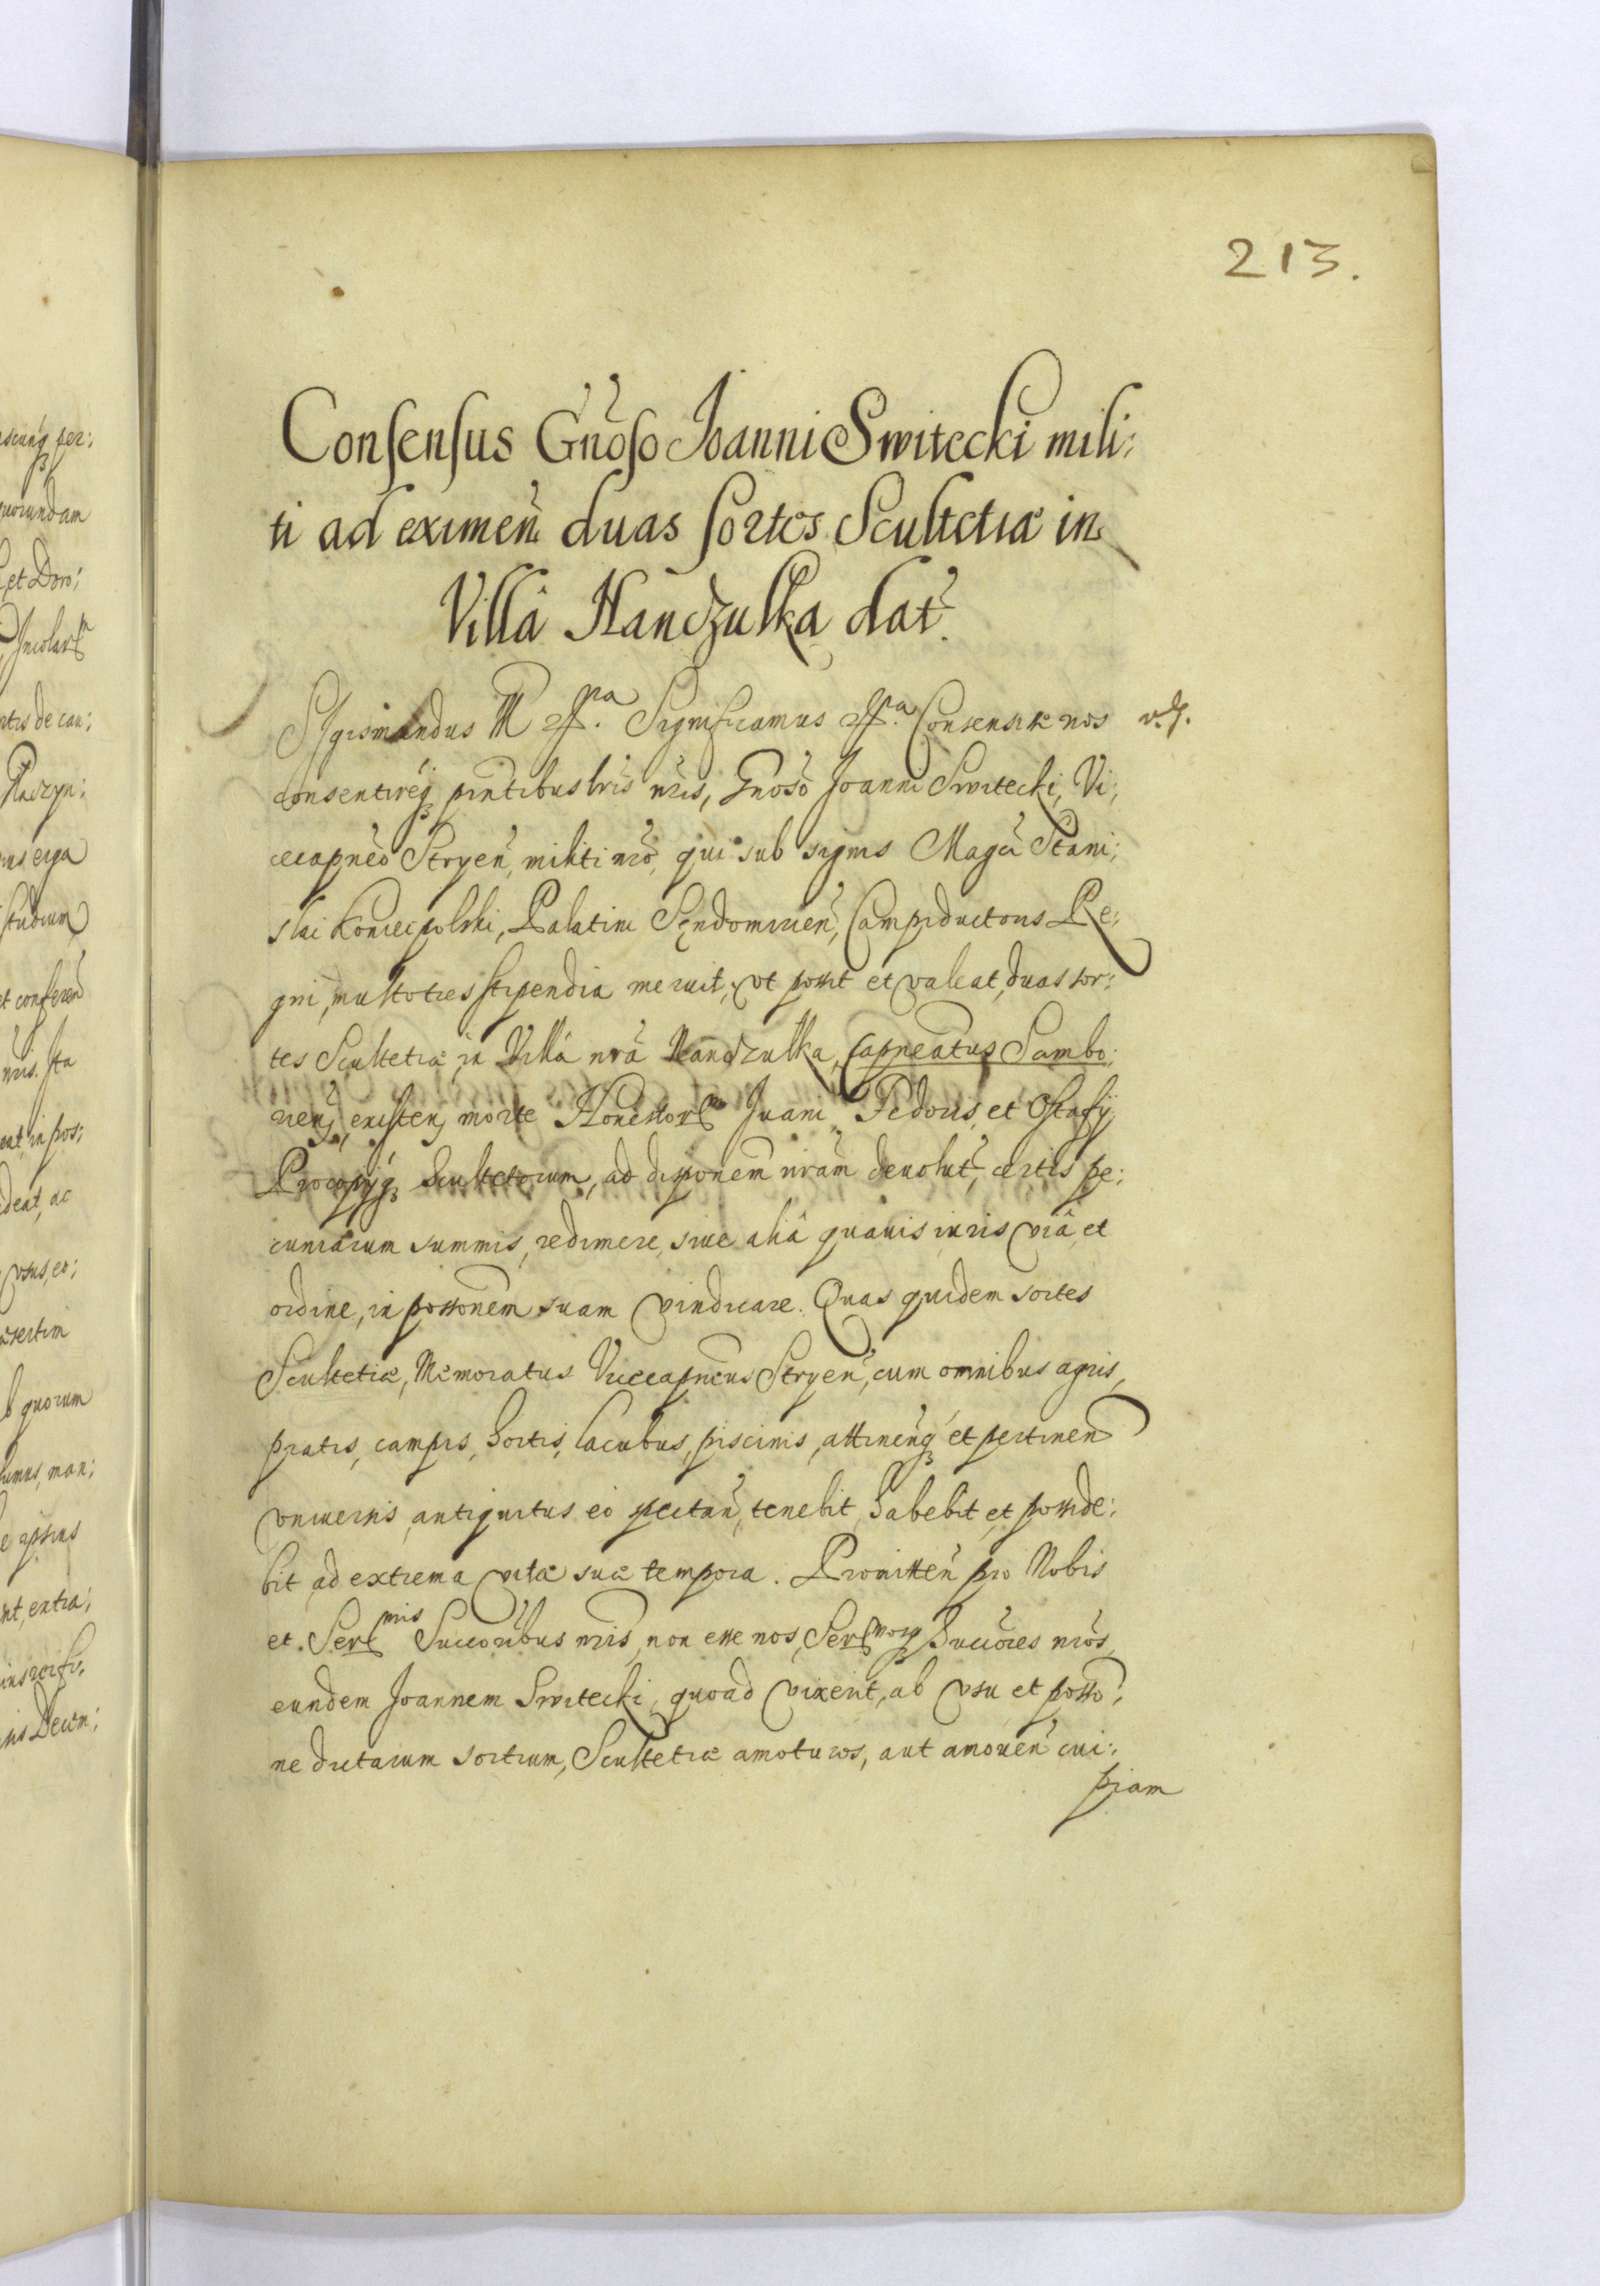 213.
Consensus Gnõso Joanni Switecki mili:
ti ad eximeñ duas sortes Scultetiæ in
Villâ Handzulka dat̃.
Sigismundus III etc. Significamus etc. Consensisse nos
consentireq̃ p̃ntibus lr̃is nr̃is, Gnõso Joanni Switecki, Vi:
cecapnẽo Stryeñ, militi nr̃o, qui sub signis Magci Stani:
slai Koniecpolski, Palatini Sendomirieñ, Campiductoris Re:
gni, multoties stipendia meruit, vt possit et valeat, duas sor:
tes Scultetiæ in Villâ nr̃a Handzulka, Capneatus Sambo:
rieñ, existeñ, morte Honestorum Juani, Fedoris, et Ostafij,
Procopijq̃ Scultetorum, ad disponem̃ nrãm deuolut̃, certis pe:
cuniarum summis, redimere, siue aliâ quauis iuris viâ et
ordine, in possonem̃ suam vindicare. Quas quidem sortes
Scultetiæ, Memoratus Vicecapneus Stryeñ, cum omnibus agris,
pratis, campis, hortis, lacubus, piscinis, attineñq̃ et pertineñ
vniuersis, antiquitus eo spectañ, tenebit, habebit, et posside:
bit, ad extrema vitæ suæ tempora. Promitteñ pro Nobis
et Sermis Succoribus nr̃is, non esse nos, Sermosq̃ Succores nr̃os,
eundem Joannem Switecki, quoad vixerit, ab vsu et posso:
ne dictarum sortium, Scultetiæ amoturos, aut amoueñ cui:
piam